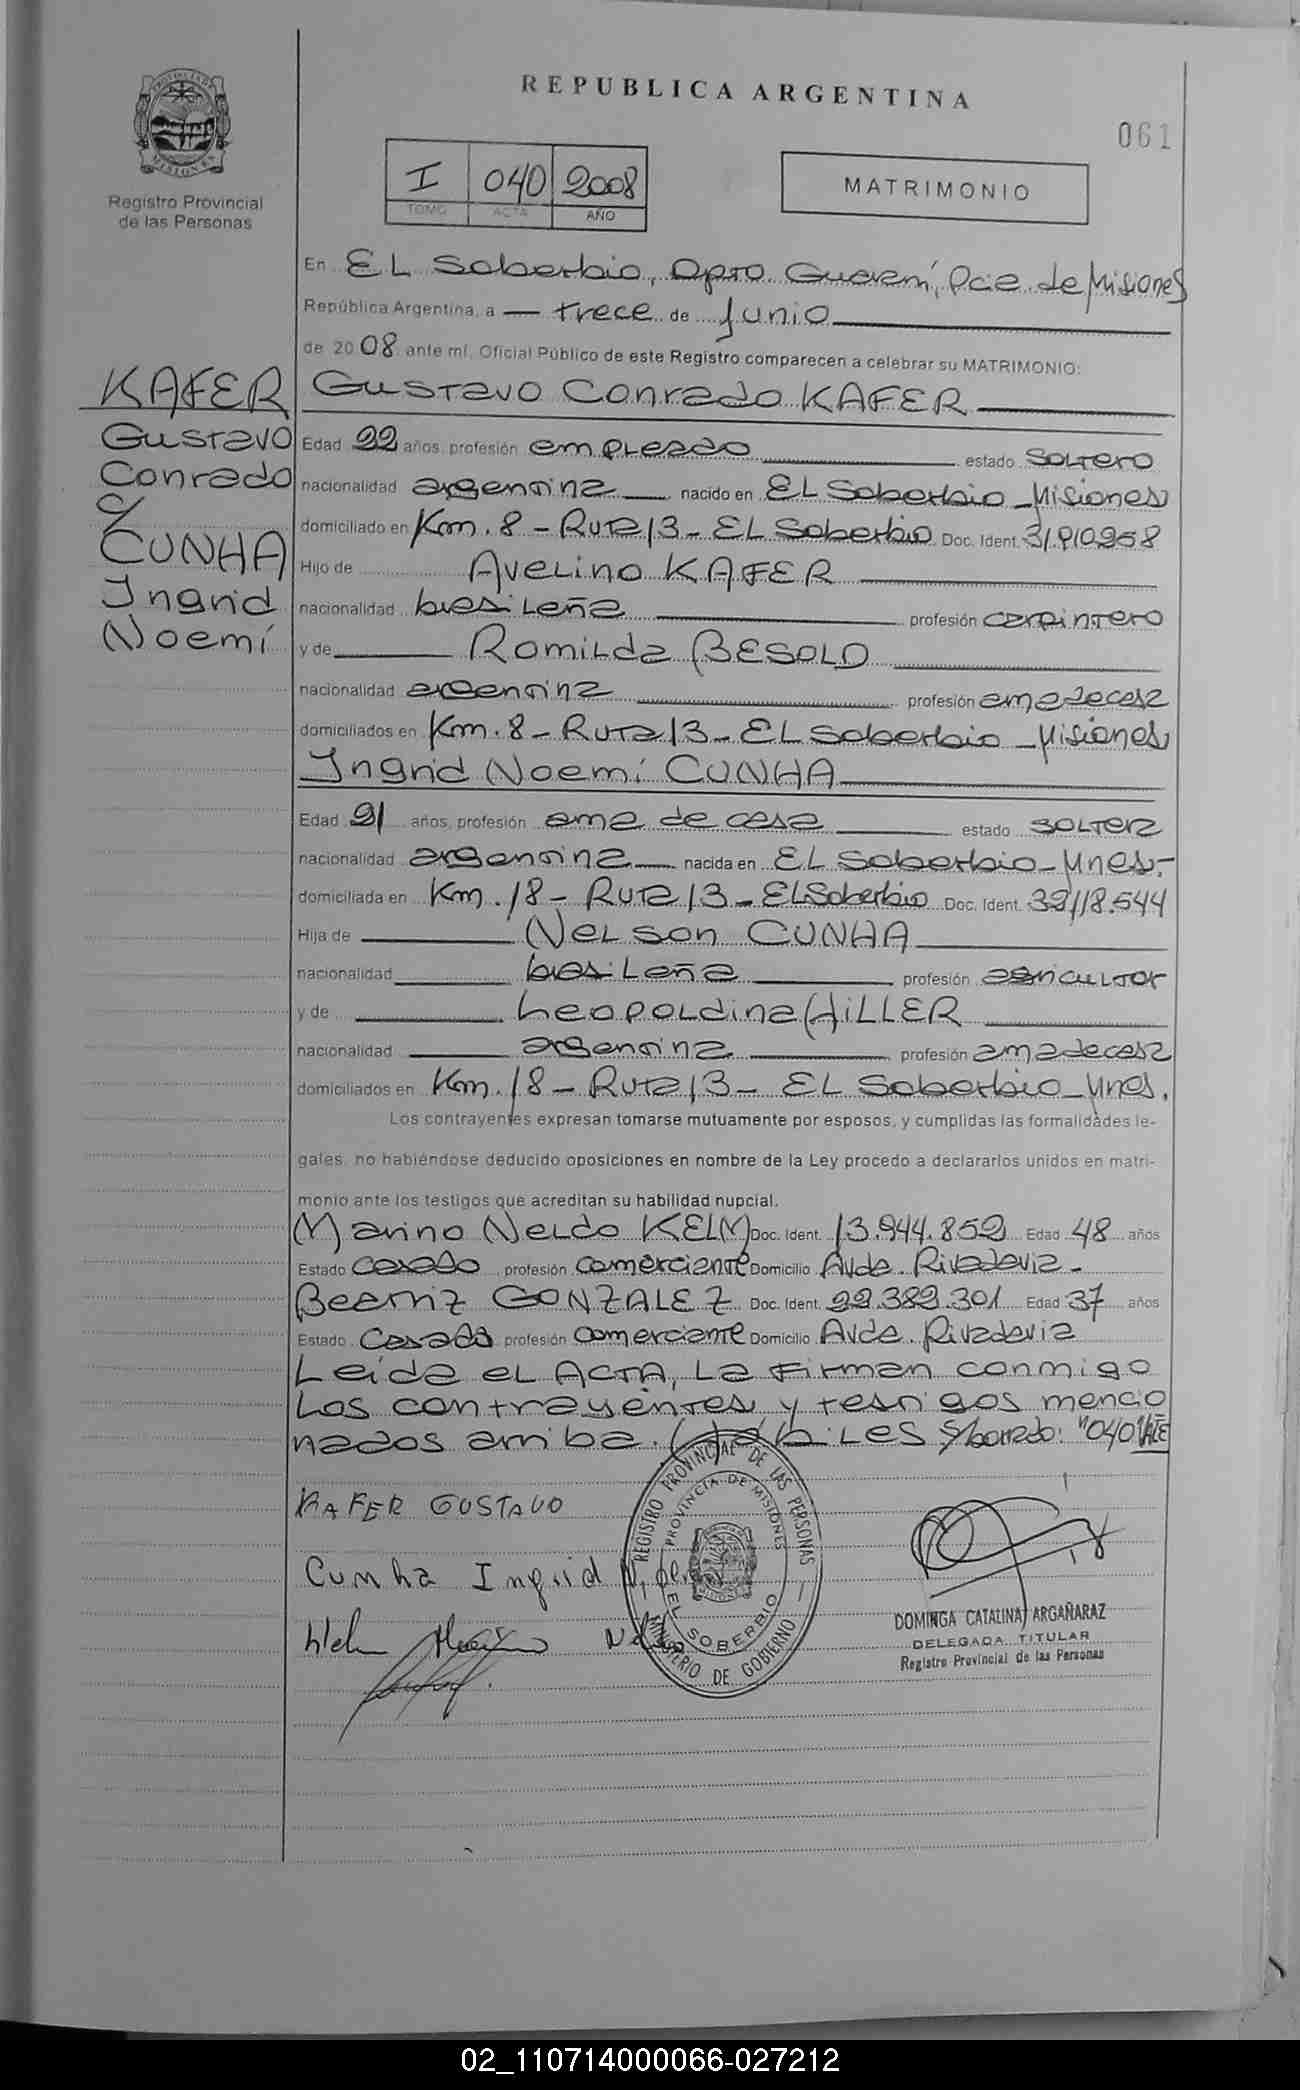 REPUBLICA ARGENTINA
061
PROVINCIA DE MISIONES
Registro Provincial
de las Personas
I 040 2008
TOMO ACTA AÑO
MATRIMONIO
En El Soberbio, Dpto. Guaraní, Pcia. de Misiones
República Argentina, a — trece de Junio
de 2008 ante mí, Oficial Público de este Registro comparecen a celebrar su MATRIMONIO:
KAFER
Gustavo
Conrado
c/
CUNHA
Ingrid
Noemí
Gustavo Conrado KAFER
Edad 22 años, profesión empleado estado soltero
nacionalidad argentina nacido en El Soberbio - Misiones
domiciliado en Km. 8 - Ruta 13 - El Soberbio Doc. Ident. 31.910.958
Hijo de Avelino KAFER
nacionalidad brasileña profesión carpintero
y de Romilda BESOLD
nacionalidad argentina profesión ama de casa
domiciliados en Km. 8 - Ruta 13 - El Soberbio - Misiones
Ingrid Noemí CUNHA
Edad 21 años, profesión ama de casa estado soltera
nacionalidad argentina nacida en El Soberbio - Mnes.-
domiciliada en Km. 18 - Ruta 13 - El Soberbio Doc. Ident. 32.118.544
Hija de Nelson CUNHA
nacionalidad brasileña profesión agricultor
y de Leopoldina HILLER
nacionalidad argentina profesión ama de casa
domiciliados en Km. 18 - Ruta 13 - El Soberbio - Mnes.
Los contrayentes expresan tomarse mutuamente por esposos, y cumplidas las formalidades le-
gales, no habiéndose deducido oposiciones en nombre de la Ley procedo a declararlos unidos en matri-
monio ante los testigos que acreditan su habilidad nupcial.
Marino Neldo KELM Doc. Ident. 13.944.852 Edad 48 años
Estado casado profesión comerciante Domicilio Avda. Rivadavia -
Beatriz GONZALEZ Doc. Ident. 22.382.301 Edad 37 años
Estado casada profesión comerciante Domicilio Avda. Rivadavia
Leida el ACTA, la firman conmigo
los contrayentes y testigos mencio
nados arriba. Hábiles s/borrado: "040" VALE
KAFER GUSTAVO
Cunha Ingrid N.
REGISTRO PROVINCIAL DE LAS PERSONAS
PROVINCIA DE MISIONES
EL SOBERBIO
MINISTERIO DE GOBIERNO
DOMINGA CATALINA ARGAÑARAZ
DELEGADA TITULAR
Registro Provincial de las Personas
02_110714000066-027212